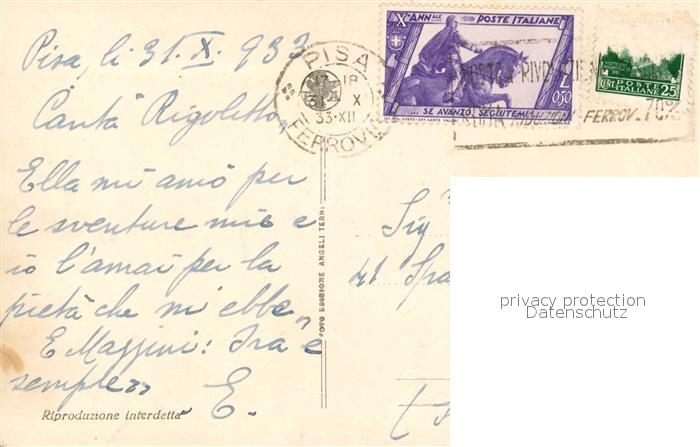 Pisa, li 31. X. 933
Canta Rigoletto,
Ella mi amò per
le sventure mie e
io l'amai per la
pietà che mi ebbe„
E Mazzini: Ira è
sempre„
E.
Riproduzione interdetta
FOTO EDIZIONE ANGELI TERNI
PISA
17-18
31 X
33-XII
FERROVIA
X° ANNALE POSTE ITALIANE
L 0,50
...SE AVANZO SEGUITEMI
MOSTRA RIVOLUZI
FERROV. 70%
POSTE
CENT. ITALIANE 25
Sig
privacy protection
Datenschutz